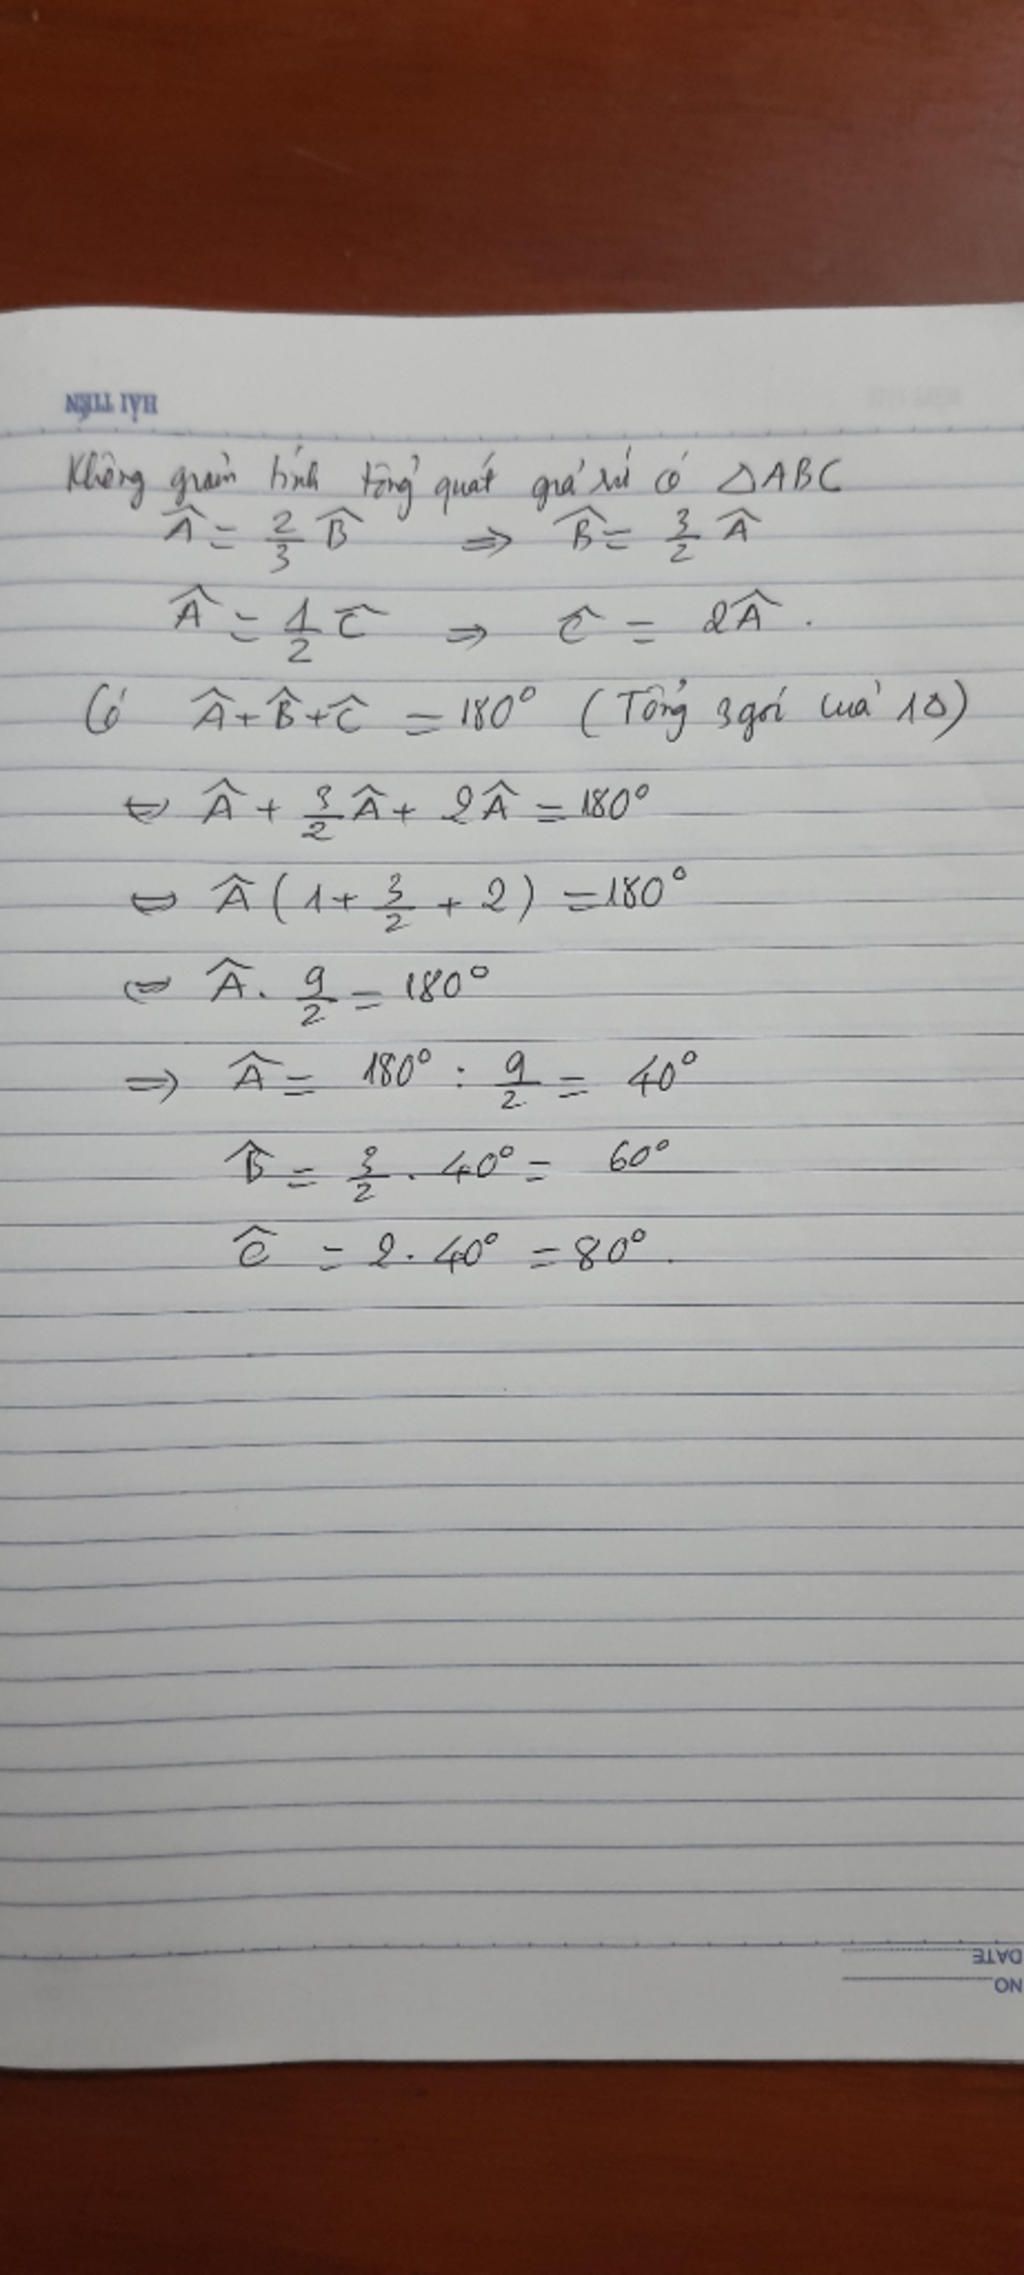 HẢI TIẾN
Không giảm tính tổng quát giả sử có ΔABC
Â = 2/3 B̂ ⇒ B̂ = 3/2 Â
Â = 1/2 Ĉ ⇒ Ĉ = 2Â.
Có Â + B̂ + Ĉ = 180° (Tổng 3 góc của 1Δ)
⇔ Â + 3/2 Â + 2Â = 180°
⇔ Â (1 + 3/2 + 2) = 180°
⇔ Â . 9/2 = 180°
⇒ Â = 180° : 9/2 = 40°
B̂ = 3/2 . 40° = 60°
Ĉ = 2 . 40° = 80°.
DATE
NO